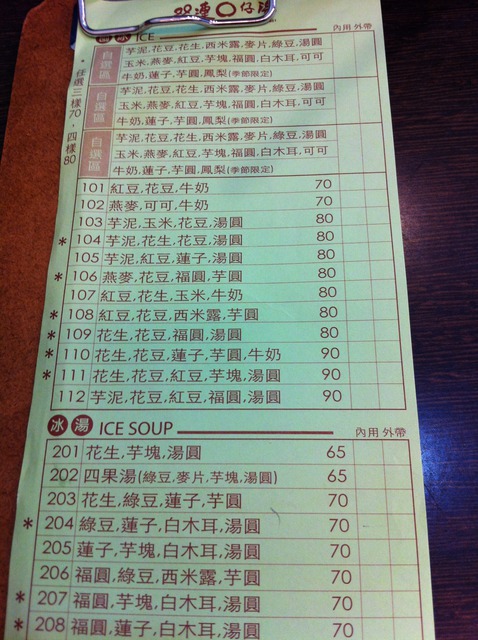 雙連圓仔湯
冰 ICE
*任選三樣70,四樣80
自選區
芋泥,花豆,花生,西米露,麥片,綠豆,湯圓
玉米,燕麥,紅豆,芋塊,福圓,白木耳,可可
牛奶,蓮子,芋圓,鳳梨(季節限定)
自選區
芋泥,花豆,花生,西米露,麥片,綠豆,湯圓
玉米,燕麥,紅豆,芋塊,福圓,白木耳,可可
牛奶,蓮子,芋圓,鳳梨(季節限定)
自選區
芋泥,花豆,花生,西米露,麥片,綠豆,湯圓
玉米,燕麥,紅豆,芋塊,福圓,白木耳,可可
牛奶,蓮子,芋圓,鳳梨(季節限定)
內用 外帶
101 紅豆,花豆,牛奶 70
102 燕麥,可可,牛奶 70
103 芋泥,玉米,花豆,湯圓 80
* 104 芋泥,花生,花豆,湯圓 80
105 芋泥,紅豆,蓮子,湯圓 80
* 106 燕麥,花豆,福圓,芋圓 80
107 紅豆,花生,玉米,牛奶 80
* 108 紅豆,花豆,西米露,芋圓 80
* 109 花生,花豆,福圓,湯圓 80
* 110 花生,花豆,蓮子,芋圓,牛奶 90
* 111 花生,花豆,紅豆,芋塊,湯圓 90
112 芋泥,花豆,紅豆,福圓,湯圓 90
冰湯 ICE SOUP 內用 外帶
201 花生,芋塊,湯圓 65
202 四果湯(綠豆,麥片,芋塊,湯圓) 65
203 花生,綠豆,蓮子,芋圓 70
* 204 綠豆,蓮子,白木耳,湯圓 70
205 蓮子,芋塊,白木耳,湯圓 70
206 福圓,綠豆,西米露,芋圓 70
* 207 福圓,芋塊,白木耳,湯圓 70
* 208 福圓,蓮子,白木耳,湯圓 70